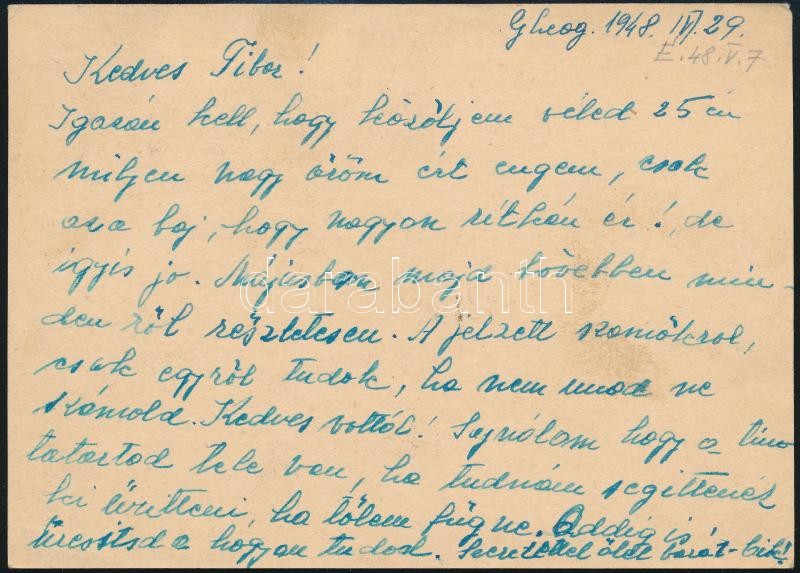 Gheog. 1948. IV. 29.
E. 48. V. 7.
Kedves Tibor!
Igazán kell, hogy közöljem véled 25 én
miljen nagy öröm ért engem, csak
az a baj, hogy nagyon rítkán ér!, de
igyis jo. Májusban majd bövebben min-
den röl részletesen. A jelzett
csak egyröl tudok, ha nem unod ne
számold. Kedves voltál! Sajnálom hogy a
tele van, ha tudnám segittenék
ki üritteni, ha tölem fügne. Addig is
ürcsitsd a hogyan tudod. Szeretettel ölel barát-
darabanth